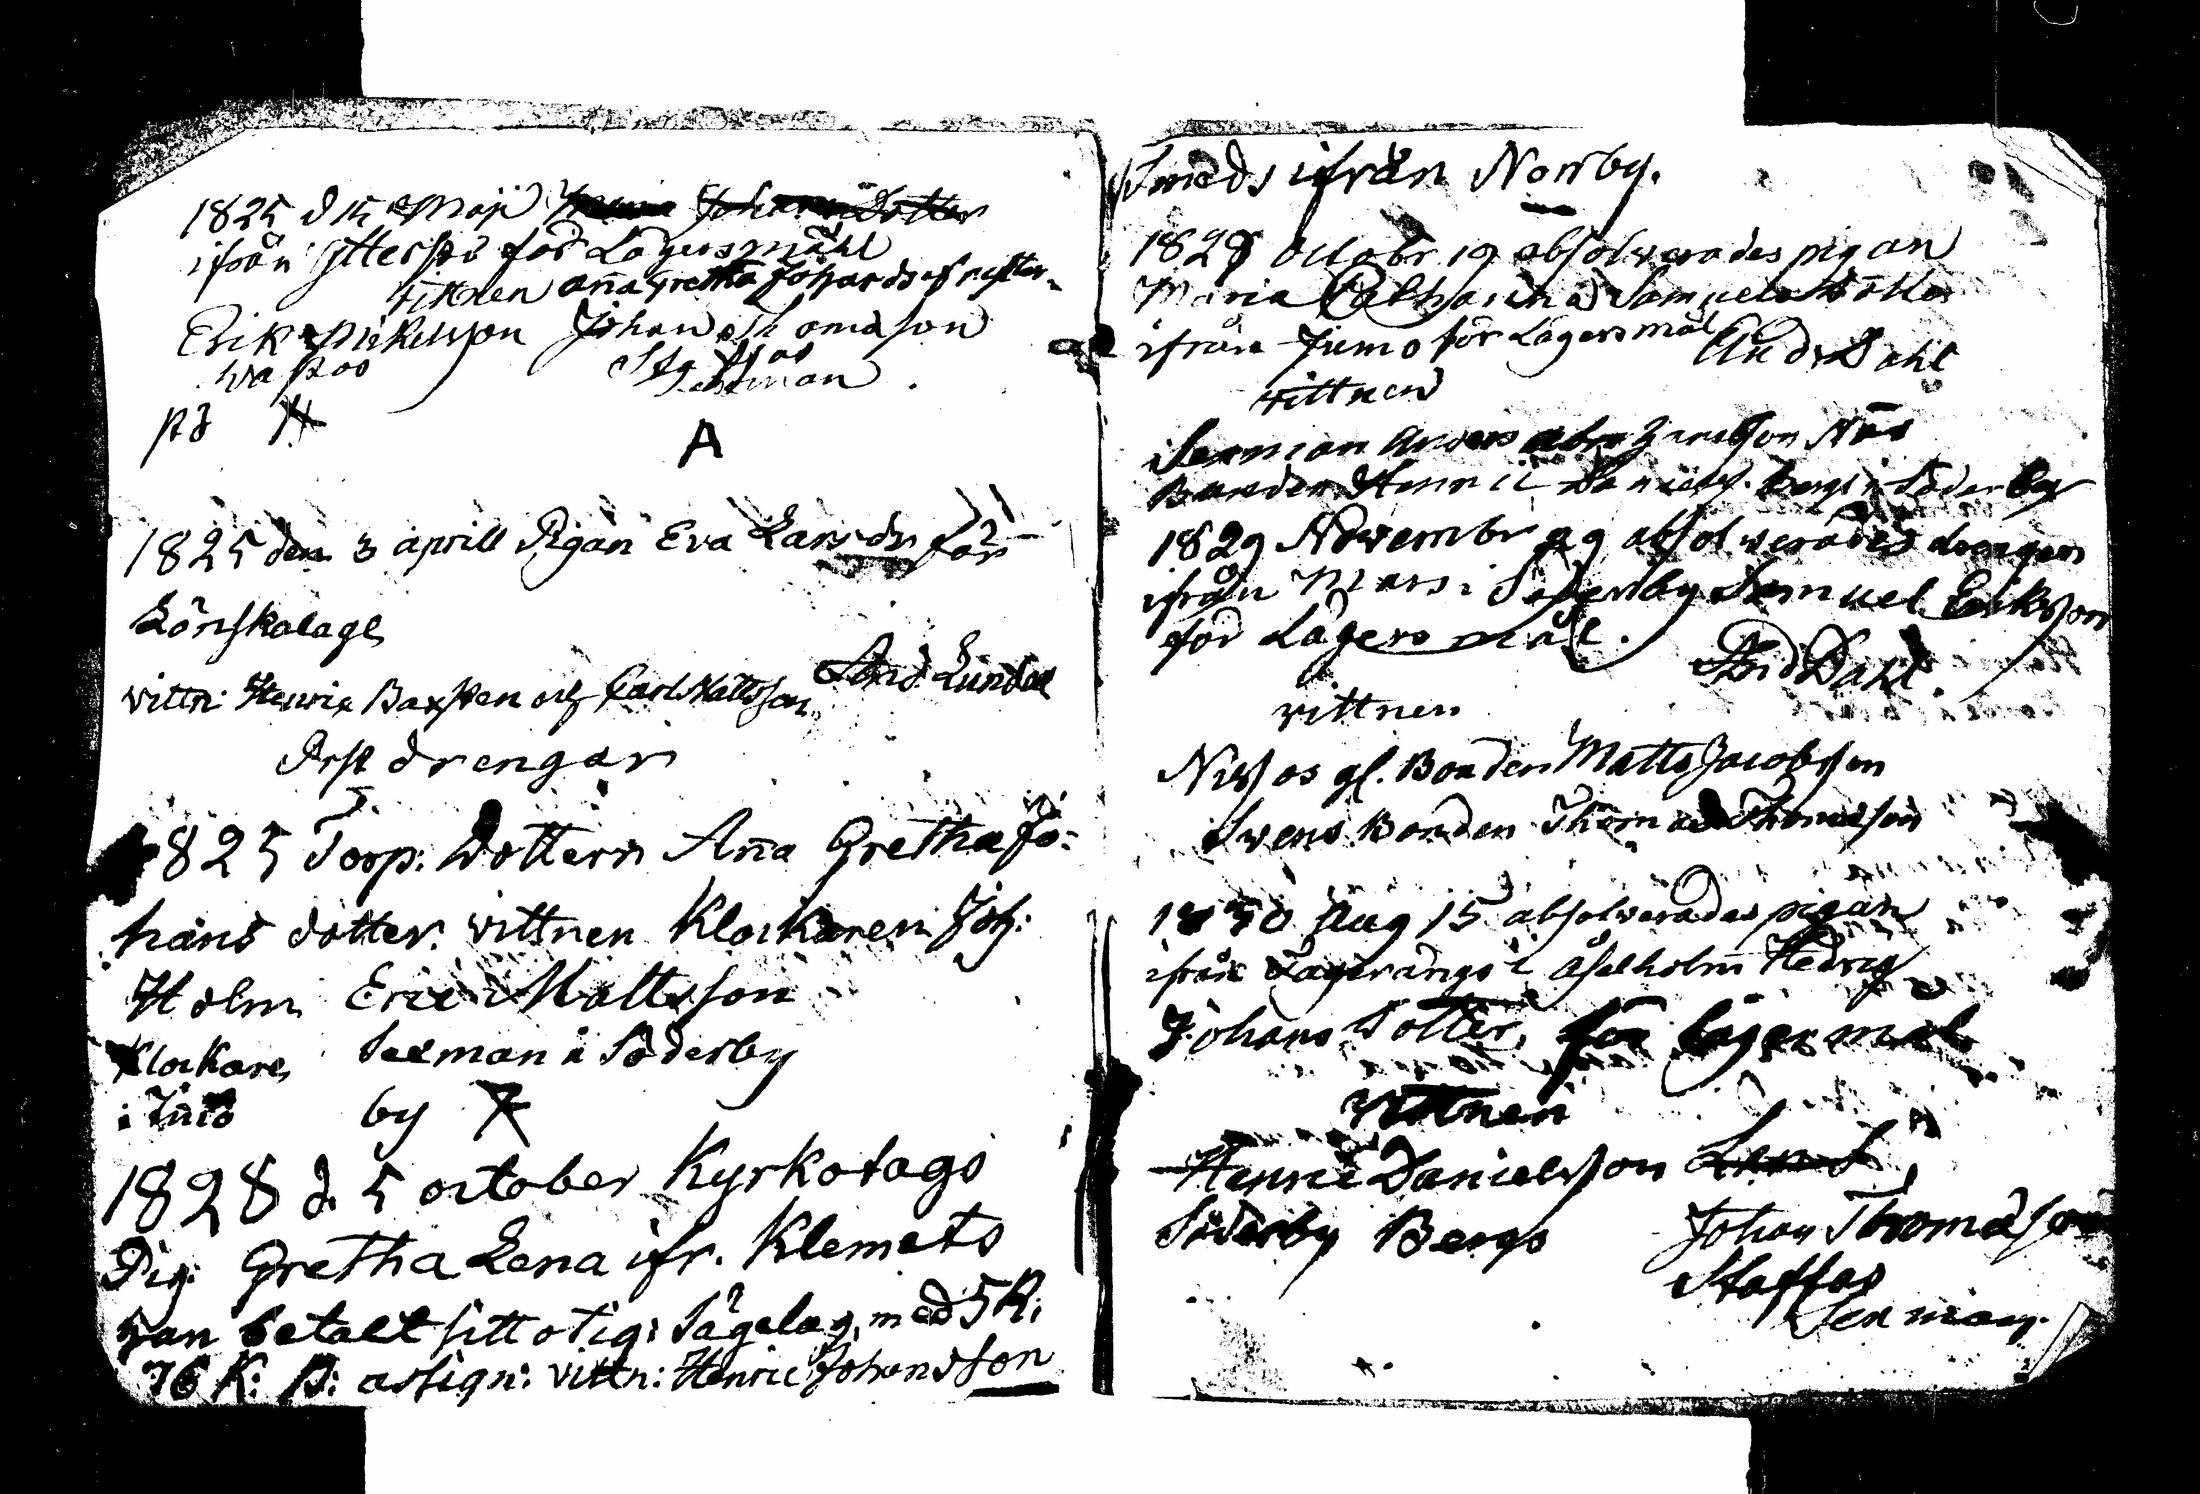 1825 d 15 Maji Johans Dotter
ifrån för Lägersmåhl
vittnen Aña Gretha
Erik Mickelsson Johan Thomasson
Staffas
på Sexman
A
1825 den 3 aprill Pigan Eva Larsdr för
Lönskalage
vittn: Henrik Baxsten och Carl Mattsson And Lundel
Pest drengar
1825 Torp. Dottern Aña Gretha Jo=
hans dotter. vittnen Klockaren Joh:
Holm Eric Mattsson
Klockare Sexman i Söderby
i by
1828 d. 5 october Kyrkotags
Pig: Gretha Lena ifr. Klemets
han betalt sitt otig: Sägelag, med 5 R:
76 K: B: assign: vittn: Henric Johansson
Smeds ifrån Norrby.
1828 octobr 19 absolverades pigan
Maria Catharina Samuels dotter
ifrån Jumo för Lägersmål And Dahl
vittnen
Sexman Anders Abrahamsson Näs
Bonden Henric Daniels. Bergs i Söderby
1829 Novembr 29 absolverades drengen
ifrån Mars i Söderby Samuel Eriksson
för Lägersmål. And Dahl.
vittnen
Nissos gl. Bonden Matts Jacobsson
Svens Bonden Thomas Thomasson
1830 Aug 15 absolverades pigan
ifrån Lagerängs i Åselholm Hedvig
Johans Dotter, för lägersmål
vittnen
Henric Danielsson
Söderby Bergs Johan Thomasson
Staffas
Sexman.